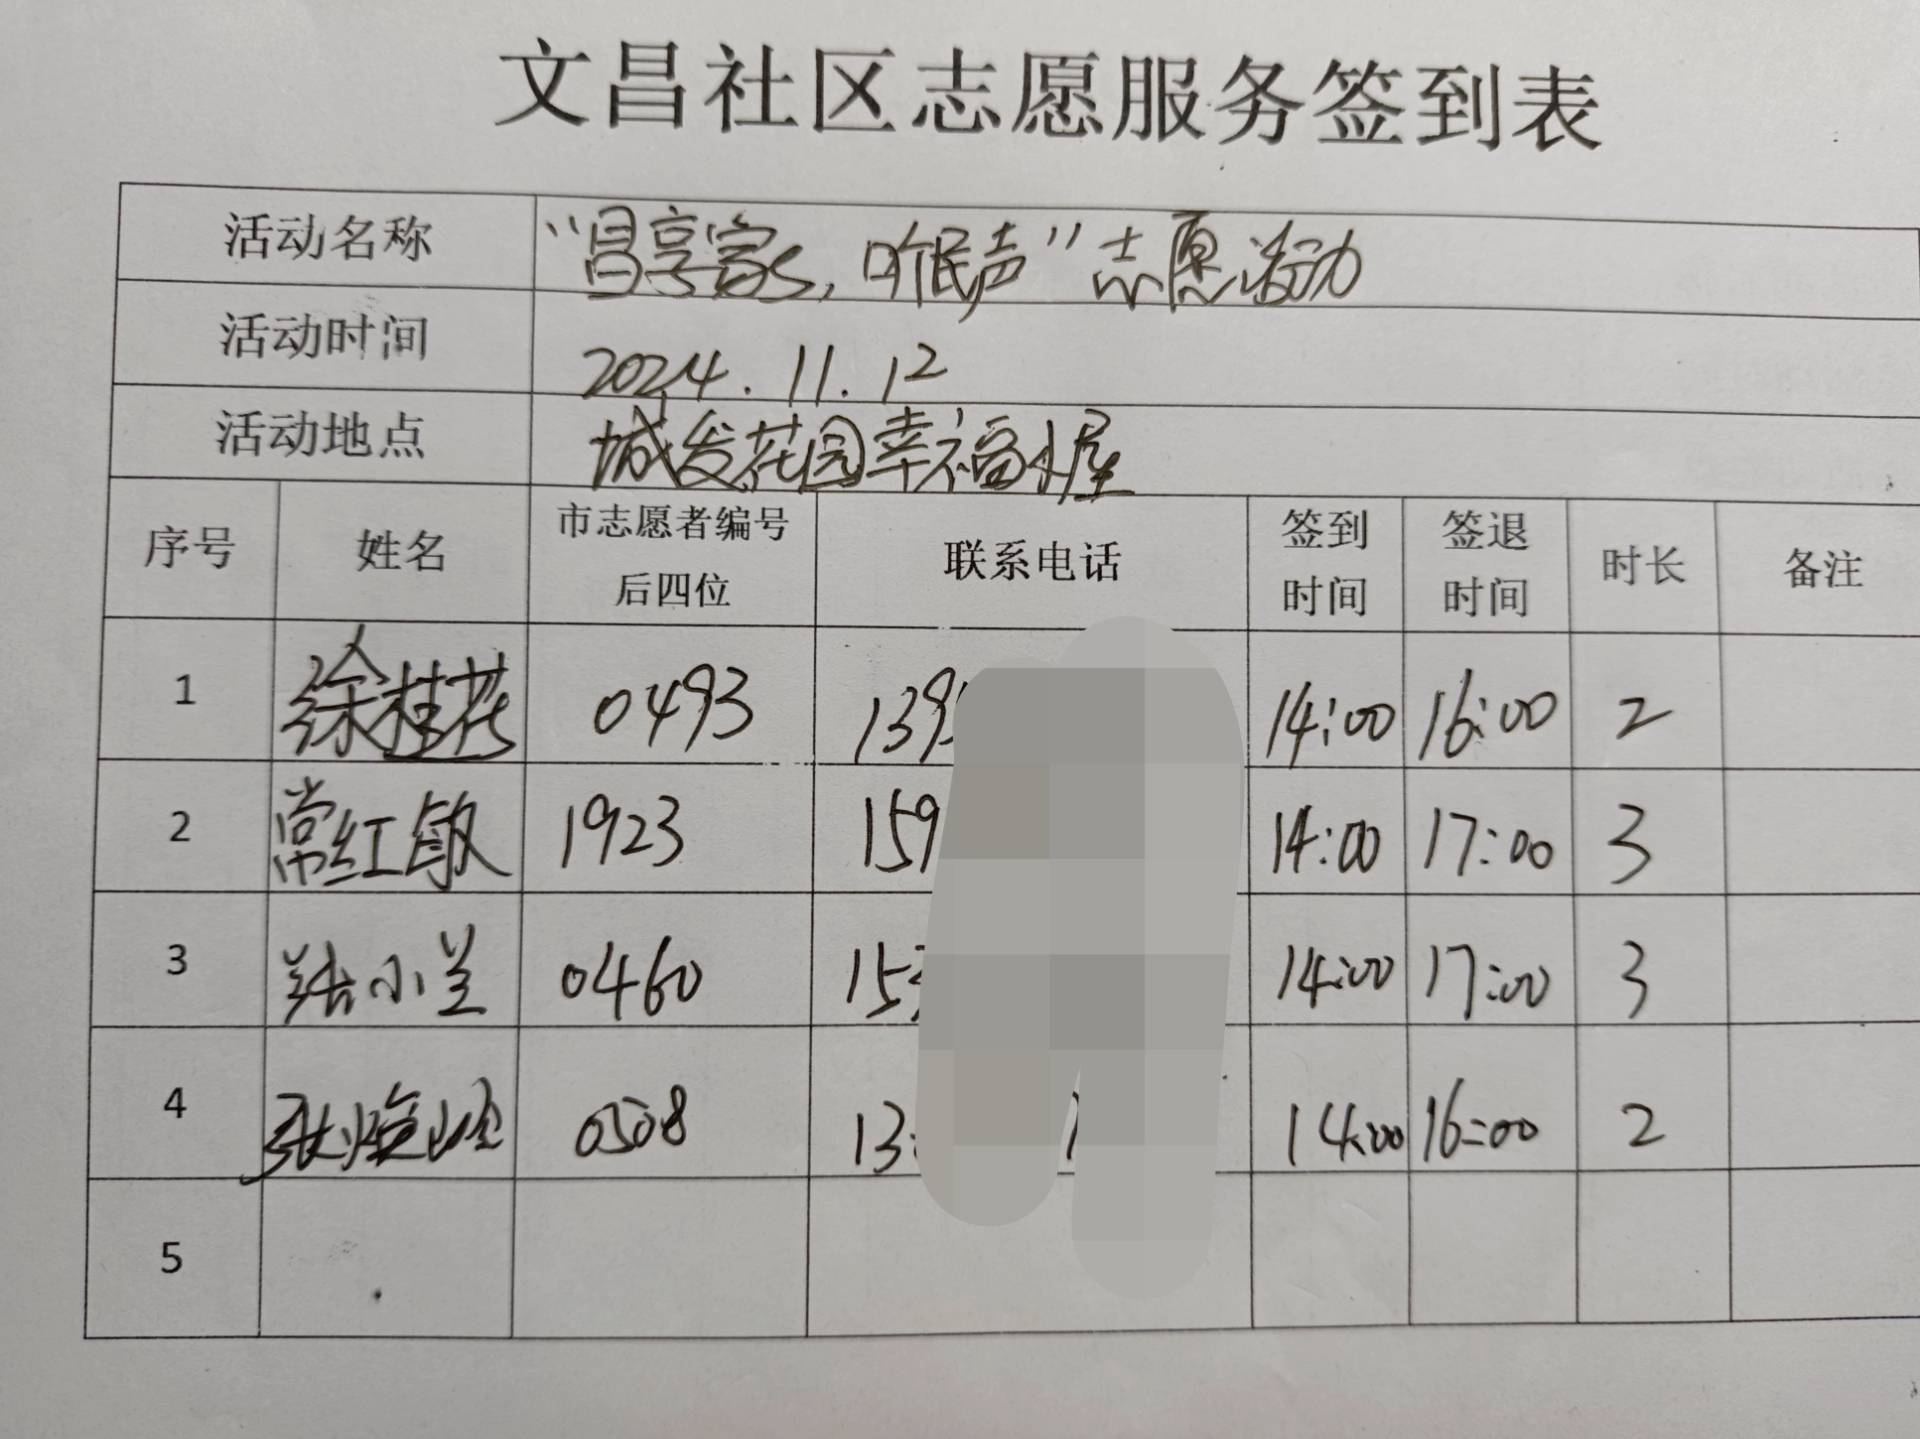 文昌社区志愿服务签到表
活动名称 “昌享家，听民声”志愿活动
活动时间 2024.11.12
活动地点 城发花园幸福小屋
序号 姓名 市志愿者编号后四位 联系电话 签到时间 签退时间 时长 备注
1 徐桂花 0493 139 14:00 16:00 2
2 常红敏 1923 159 14:00 17:00 3
3 小兰 0460 153 14:00 17:00 3
4 张 0508 13 14:00 16:00 2
5